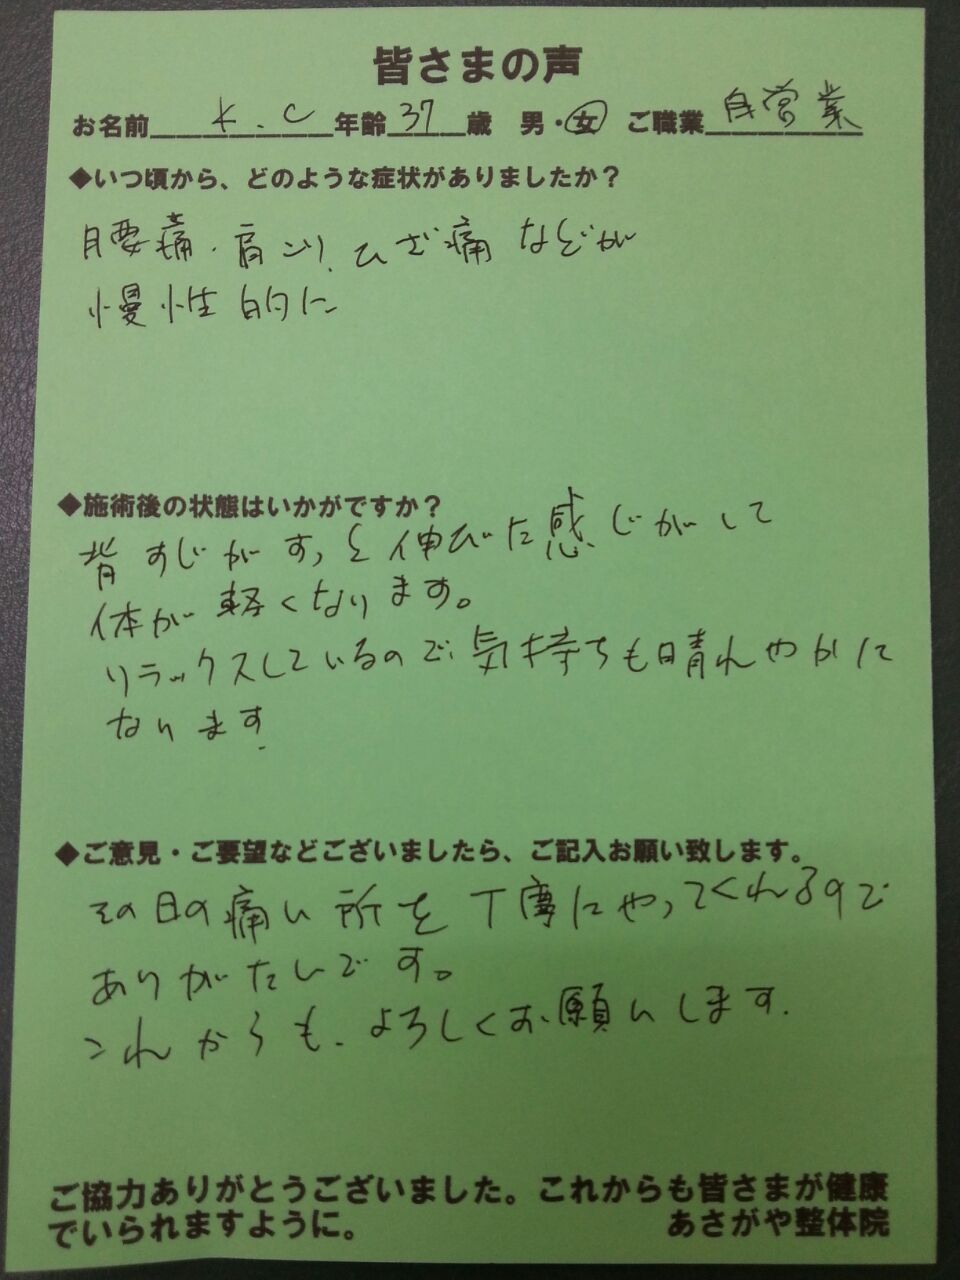 皆さまの声
お名前 K.C 年齢 37 歳 男・女 ご職業 自営業
◆いつ頃から、どのような症状がありましたか？
腰痛・肩こり、ひざ痛などが
慢性的に
◆施術後の状態はいかがですか？
背すじがすっと伸びた感じがして
体が軽くなります。
リラックスしているので、気持ちも晴れやかに
なります.
◆ご意見・ご要望などございましたら、ご記入お願い致します。
その日の痛い所を丁寧にやってくれるので
ありがたいです。
これからも、よろしくお願いします.
ご協力ありがとうございました。これからも皆さまが健康
でいられますように。 あさがや整体院